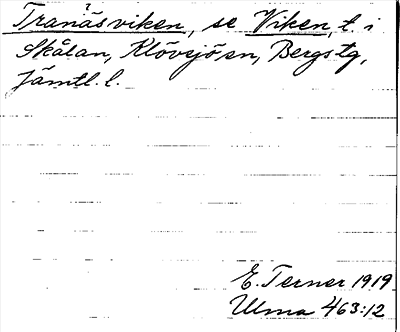 Tranäsviken, se Viken, t. i
Skålan, Klövsjö sn, Bergs tg,
Jämtl. l.
E. Terner 1919
Ulma 463:12